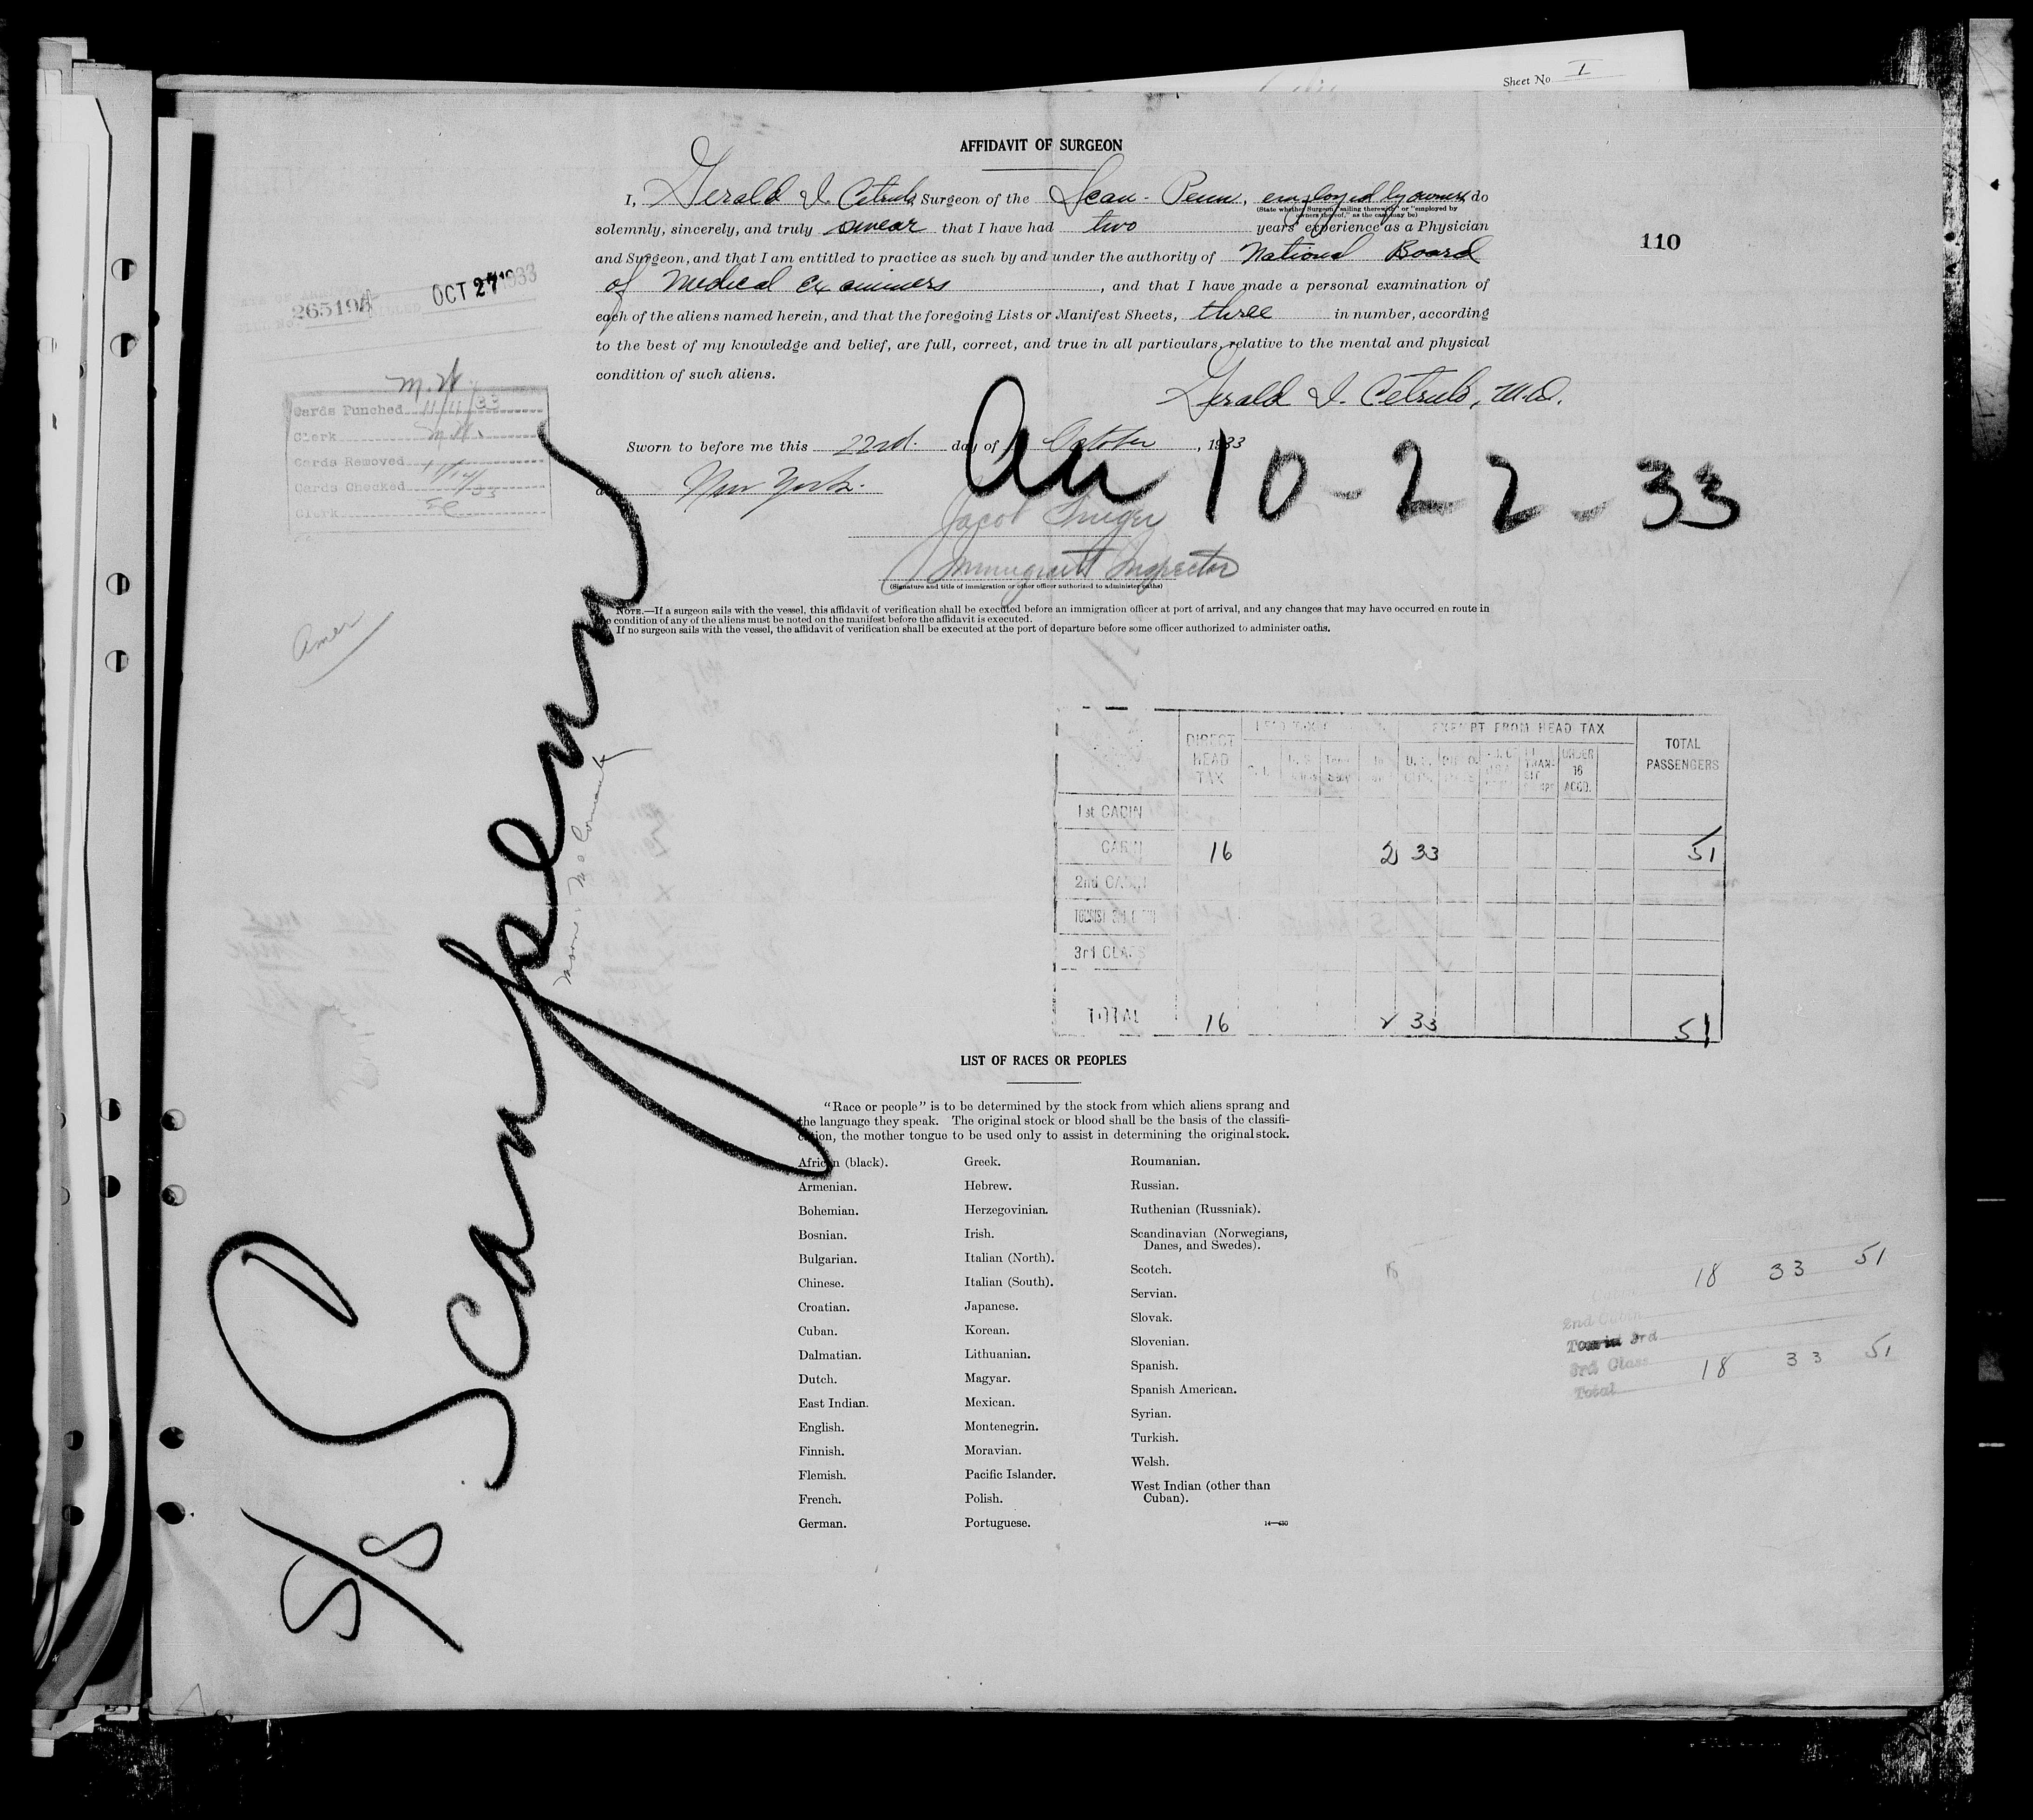 Sheet No. I
AFFIDAVIT OF SURGEON
I, Gerald I. Cetrulo, Surgeon of the Scan-Penn, employed by owners, do
(State whether Surgeon "sailing therewith" or "employed by
owners thereof," as the case may be)
solemnly, sincerely, and truly swear that I have had two years' experience as a Physician
and Surgeon, and that I am entitled to practice as such by and under the authority of National Board
of Medical Examiners, and that I have made a personal examination of
each of the aliens named herein, and that the foregoing Lists or Manifest Sheets, three in number, according
to the best of my knowledge and belief, are full, correct, and true in all particulars, relative to the mental and physical
condition of such aliens.
Gerald I. Cetrulo, M.D.
110
265198
OCT 27 1933
M.H.
Cards Punched 11/11/33
Clerk M.H.
Cards Removed
Cards Checked 11/14/33
Clerk
Sworn to before me this 22nd. day of October, 1933
at New York.
Arr 10-22-33
Jacob
Immigrant Inspector
(Signature and title of immigration or other officer authorized to administer oaths)
NOTE.—If a surgeon sails with the vessel, this affidavit of verification shall be executed before an immigration officer at port of arrival, and any changes that may have occurred en route in
the condition of any of the aliens must be noted on the manifest before the affidavit is executed.
If no surgeon sails with the vessel, the affidavit of verification shall be executed at the port of departure before some officer authorized to administer oaths.
Amer
S/S Scanpenn
Moore & McCormack
DIRECT HEAD TAX
EXEMPT FROM HEAD TAX
TOTAL PASSENGERS
UNDER 16 ACCD.
1st CABIN
CABIN 16 2 33 51
2nd CABIN
TOURIST 3rd CABIN
3rd CLASS
TOTAL 16 2 33 51
LIST OF RACES OR PEOPLES
"Race or people" is to be determined by the stock from which aliens sprang and
the language they speak. The original stock or blood shall be the basis of the classifi-
cation, the mother tongue to be used only to assist in determining the original stock.
African (black).
Armenian.
Bohemian.
Bosnian.
Bulgarian.
Chinese.
Croatian.
Cuban.
Dalmatian.
Dutch.
East Indian.
English.
Finnish.
Flemish.
French.
German.
Greek.
Hebrew.
Herzegovinian.
Irish.
Italian (North).
Italian (South).
Japanese.
Korean.
Lithuanian.
Magyar.
Mexican.
Montenegrin.
Moravian.
Pacific Islander.
Polish.
Portuguese.
Roumanian.
Russian.
Ruthenian (Russniak).
Scandinavian (Norwegians,
Danes, and Swedes).
Scotch.
Servian.
Slovak.
Slovenian.
Spanish.
Spanish American.
Syrian.
Turkish.
Welsh.
West Indian (other than
Cuban).
14—430
18 33 51
2nd Cabin
Tourist 3rd
3rd Class
Total 18 33 51